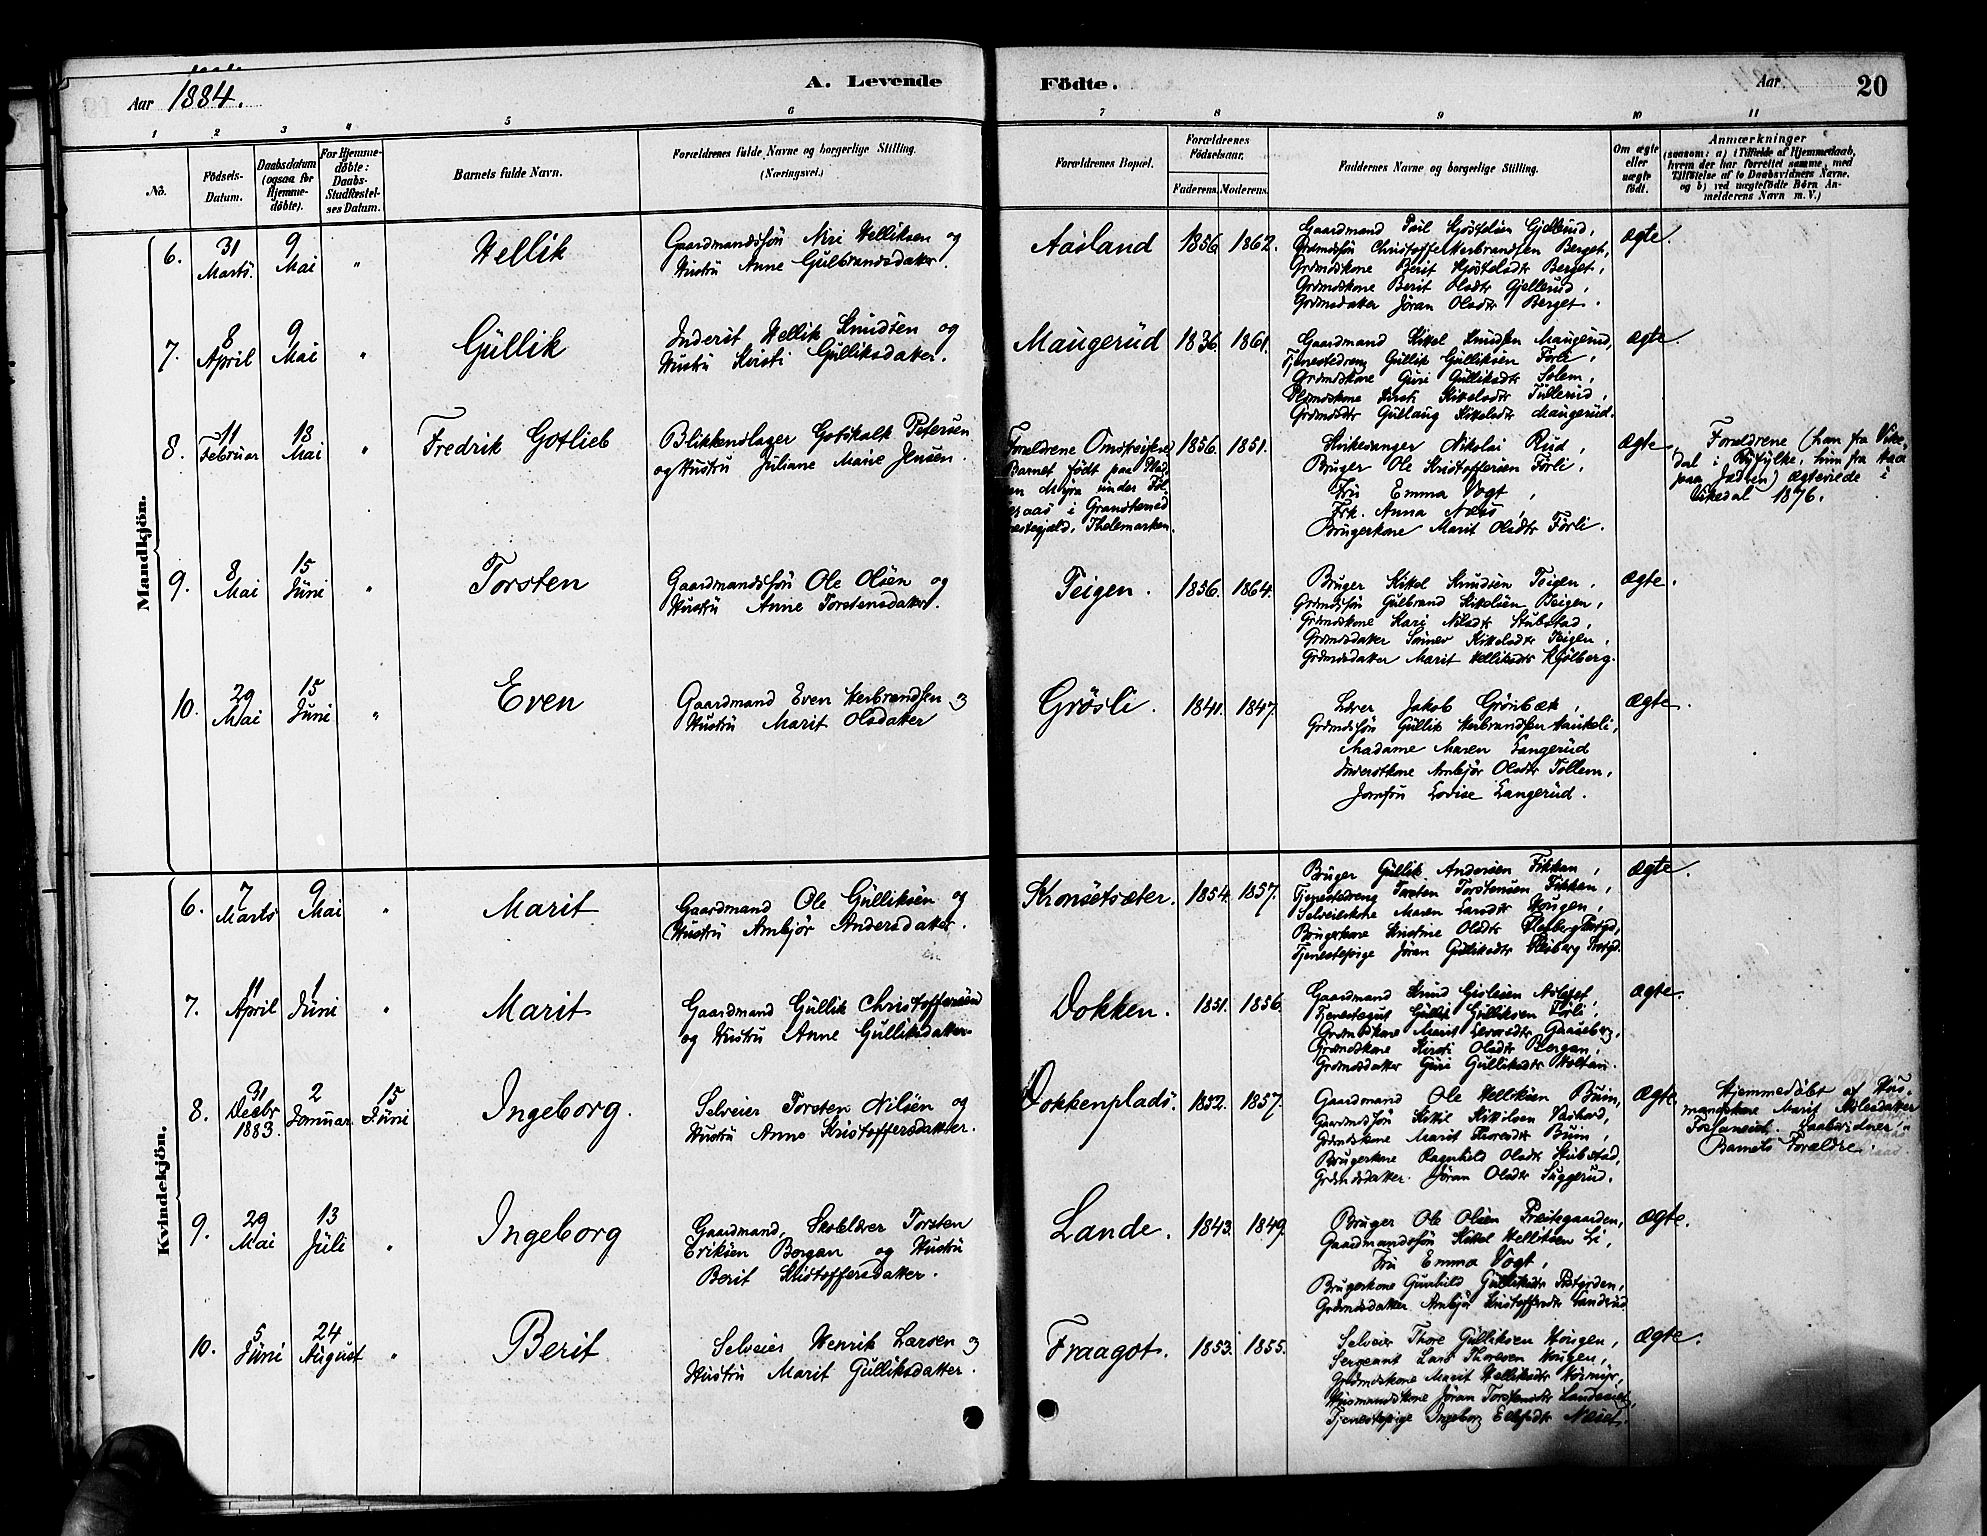 Aar 1884.
A. Levende Födte.
Aar
20
1 2 3 4 5 6 7 8 9 10 11
No.
Födsels-Datum.
Daabsdatum (ogsaa for Hjemme-döbte).
For Hjemme-döbte: Daabs-Stadfæstel-ses Datum.
Barnets fulde Navn.
Forældrenes fulde Navne og borgerlige Stilling. (Næringsvei.)
Forældrenes Bopæl.
Forældrenes Födselsaar.
Faderens. Moderens.
Faddernes Navne og borgerlige Stilling.
Om ægte eller uægte födt.
Anmærkninger
(saasom: a) i Tilfælde af Hjemmedaab, hvem der har forrettet samme, med Tilföielse af to Daabsvidners Navne. og b) ved uægtefödte Börn An-melderens Navn m. V.)
Mandkjön.
6. 31 Marts. 9 Mai " Hellik
Gaardmandssön Helliksen og
Hustru Anne Gulbrandsdatter.
Aasland 1856. 1862.
Gaardmand Paul Gjellerud,
Grdmdssön Christoffer Herbrandsen Berget,
Grdmdskone Berit Berget,
Grdmdskone Berit Olsdtr Gjellerud,
Grdmdsdatter Jöran Olsdtr Berget.
ægte.
7. 8 April 9 Mai " Gullik
Inderst Hellik Knudsen og
Hustru Kirsti Gulliksdatter.
Maugerud 1836. 1861.
Gaardmand Kittel Knudsen Maugerud,
Tjenestedreng Gullik Gulliksen Førli,
Grdmdskone Guri Gulliksdtr Solem,
Kittelsdtr Tullerud,
Grdmdsdtr Gullaug Kittelsdtr Maugerud.
ægte.
8. 11 Februar 18 Mai " Fredrik Gotlieb
Blikkenslager Gotskalk Petersen
og Hustru Juliane Marie Jensen.
Forældrene Omstreifere
Barnet født paa Plad-
sen Myra under
i
Præstegjæld, Thelemarken.
1856. 1851.
Kirkesanger Nikolai Rud,
Bruger Ole Kristoffersen Førli,
Fru Emma Vogt,
Frk. Anna Næss,
Brugerkone Marit Olsdtr Førli.
ægte
Forældrene (han fra Vike-
dal i Ryfylke, hun fra
paa Jædren) ægteviede i
Vikedal 1876.
9. 8 Mai 15 Juni " Torsten
Gaardmandssön Ole Olsen og
Hustru Anne Torstensdatter.
Teigen. 1856. 1864.
Bruger Kittel Knudsen Teigen,
Grdmdssön Gulbrand Kittelsen Teigen,
Grdmdskone Kari Nilsdtr Stubstad,
Grdmdsdatter Kittelsdtr Teigen,
Grdmdsdatter Marit Helliksdtr Kjølberg.
ægte.
10. 29 Mai 15 Juni " Even
Gaardmand Even Herbrandsen og
Hustru Marit Olsdatter
Grøsli. 1841. 1847.
Lærer Jakob Grønbæk,
Grdmdssön Gullik Herbrandsen
Madame Maren Langerud
Inderstkone Ambjør Olsdtr Tollem,
Jomfru Lovise Langerud.
ægte.
Kvindekjön.
6. 7 Marts 9 Mai " Marit
Gaardmand Ole Gulliksen og
Hustru Ambjør Andersdatter.
Kronsetsæter. 1854. 1857.
Bruger Gullik Andersen Fikkan,
Tjenestedreng Torsten Torstensen Fikkan,
Selveierkone Maren Hougen,
Brugerkone Kristine Olsdtr Flesberg Prstgd,
Tjenestepige Jöran Gulliksdtr Flesberg Prstgd.
ægte.
7. 11 April 1 Juni " Marit
Gaardmand Gullik Christoffersen
og Hustru Anne Gulliksdatter
Dokken. 1851. 1856.
Gaardmand Knud Gislesen
Tjenestegut Gullik Gulliksen Førli,
Grdmdskone Marit
Grdmdskone Kirsti Olsdtr Bergan,
Grdmdsdatter Guri Gulliksdtr
ægte.
8. 31 Decbr 1883. 2 Januar 15 Juni Ingeborg.
Selveier Torsten Nilsen og
Hustru Anne Kristoffersdatter.
Dokkenplads. 1852. 1857.
Gaardmand Ole Helliksen Buin,
Gaardmdssön Kittil Kittilsen
Grdmdskone Marit Thoresdtr Buin,
Brugerkone Ragnhild Olsdtr Stubstad,
Grdmdsdatter Jöran Olsdtr Suggerud.
ægte.
Hjemmedøbt af Hus-
mandskone Marit
Daabsvidner:
Barnets Forældre.
9. 29 Mai 13 Juli " Ingeborg
Gaardmand, Skolelærer Torsten
Eriksen Bergan og Hustru
Berit Kristoffersdatter.
Lande. 1843. 1849.
Bruger Ole Olsen Præstegaarden,
Gaardmandssön Kittel Helliksen Li,
Fru Emma Vogt,
Brugerkone Gunhild Gulliksdtr
Grdmdsdatter Ambjør Kristoffersdtr Landerud
ægte.
10. 5 Juni 24 August " Berit
Selveier Henrik Larsen og
Hustru Marit Gulliksdatter.
Fraagot. 1853. 1855.
Selveier Thore Gulliksen Hougen,
Sergeant Lars Thoresen Hougen,
Grdmdskone Marit Helliksdtr
Husmandskone Jöran Torstensdtr
Tjenestepige Ingeborg Næset.
ægte.